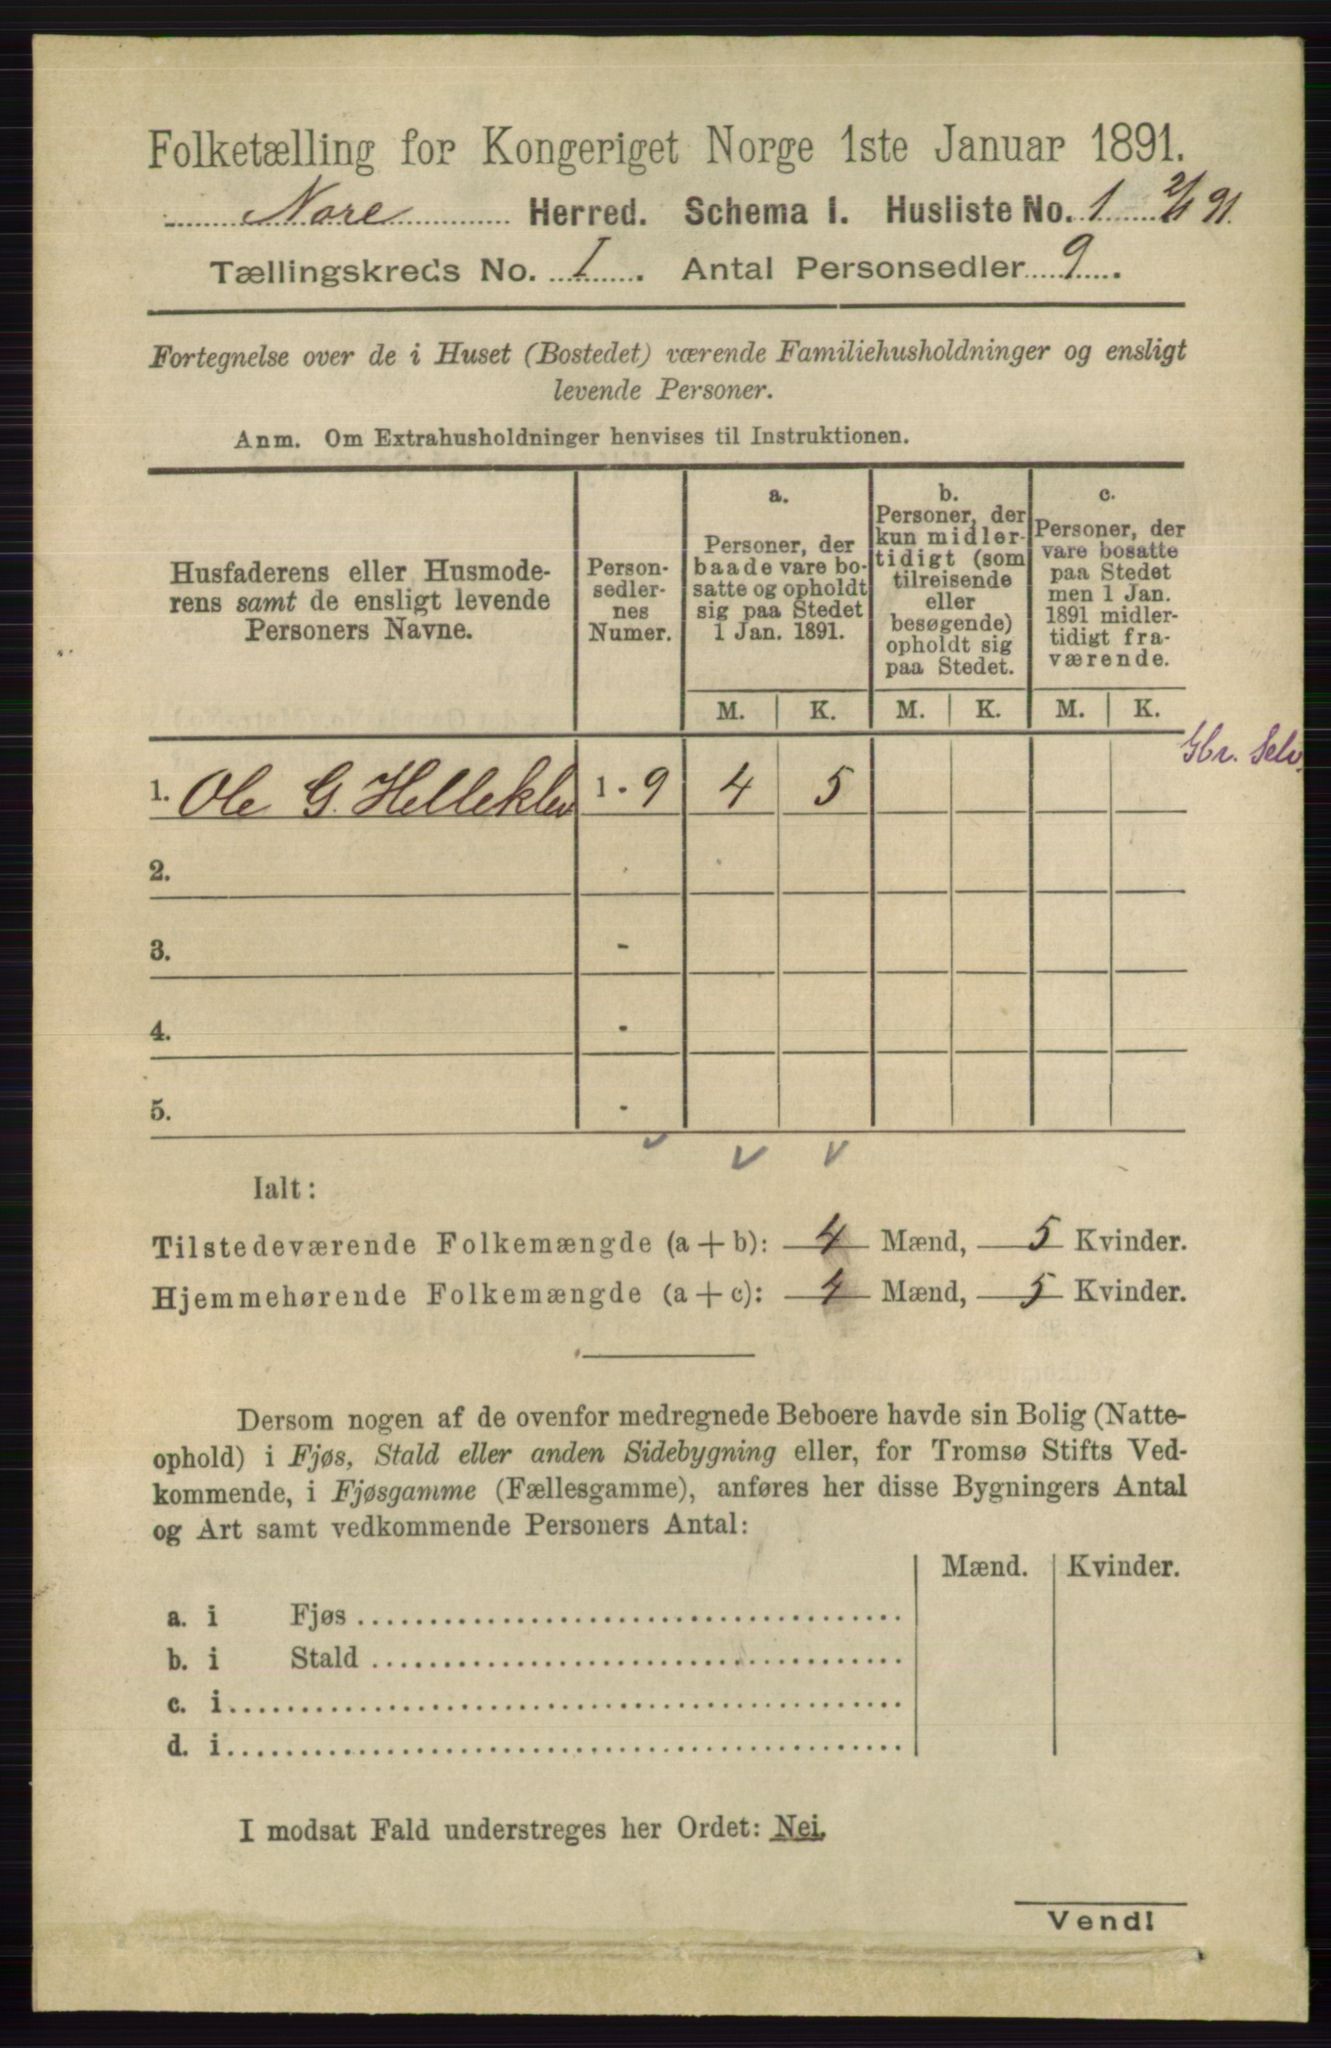 Folketælling for Kongeriget Norge 1ste Januar 1891.
Nore Herred. Schema I. Husliste No. 1 2/1 91.
Tællingskreds No. I. Antal Personsedler 9.
Fortegnelse over de i Huset (Bostedet) værende Familiehusholdninger og ensligt
levende Personer.
Anm. Om Extrahusholdninger henvises til Instruktionen.
Husfaderens eller Husmode-
rens samt de ensligt levende
Personers Navne.
Person-
sedler-
nes
Numer.
a.
Personer, der
baade vare bo-
satte og opholdt
sig paa Stedet
1 Jan. 1891.
b.
Personer, der
kun midler-
tidigt (som
tilreisende
eller
besøgende)
opholdt sig
paa Stedet.
c.
Personer, der
vare bosatte
paa Stedet
men 1 Jan.
1891 midler-
tidigt fra-
værende.
M. K. M. K. M. K.
Gbr. Selv.
1. Ole G. Helleklev 1 - 9 4 5
2.
3. -
4. -
5. -
Ialt:
Tilstedeværende Folkemængde (a + b): 4 Mænd, 5 Kvinder.
Hjemmehørende Folkemængde (a + c): 4 Mænd, 5 Kvinder.
Dersom nogen af de ovenfor medregnede Beboere havde sin Bolig (Natte-
ophold) i Fjøs, Stald eller anden Sidebygning eller, for Tromsø Stifts Ved-
kommende, i Fjøsgamme (Fællesgamme), anføres her disse Bygningers Antal
og Art samt vedkommende Personers Antal:
Mænd. Kvinder.
a. i Fjøs
b. i Stald
c. i
d. i
I modsat Fald understreges her Ordet: Nei.
Vend!